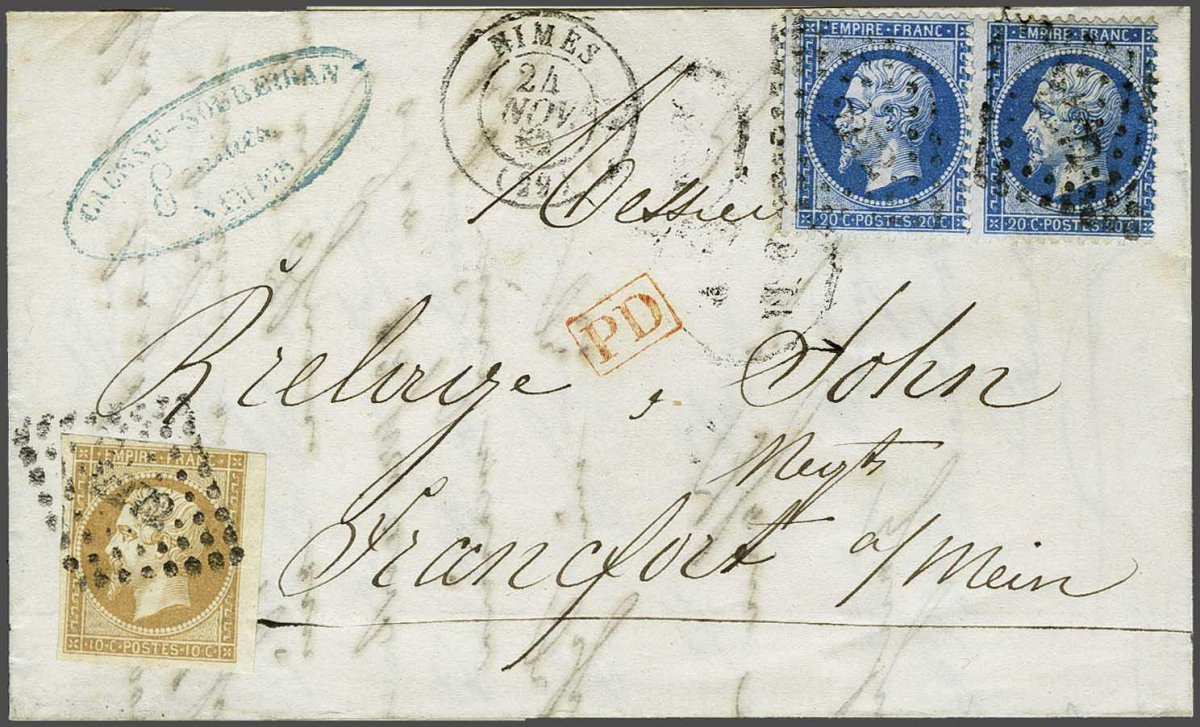 NIMES
24
NOV.
EMPIRE FRANC
20 C·POSTES·20 C
EMPIRE FRANC
20 C·POSTES·20 C
Messieu
PD
Brelaye, John
Negts
Francfort a/Mein
EMPIRE FRANC
10·C·POSTES·10·C